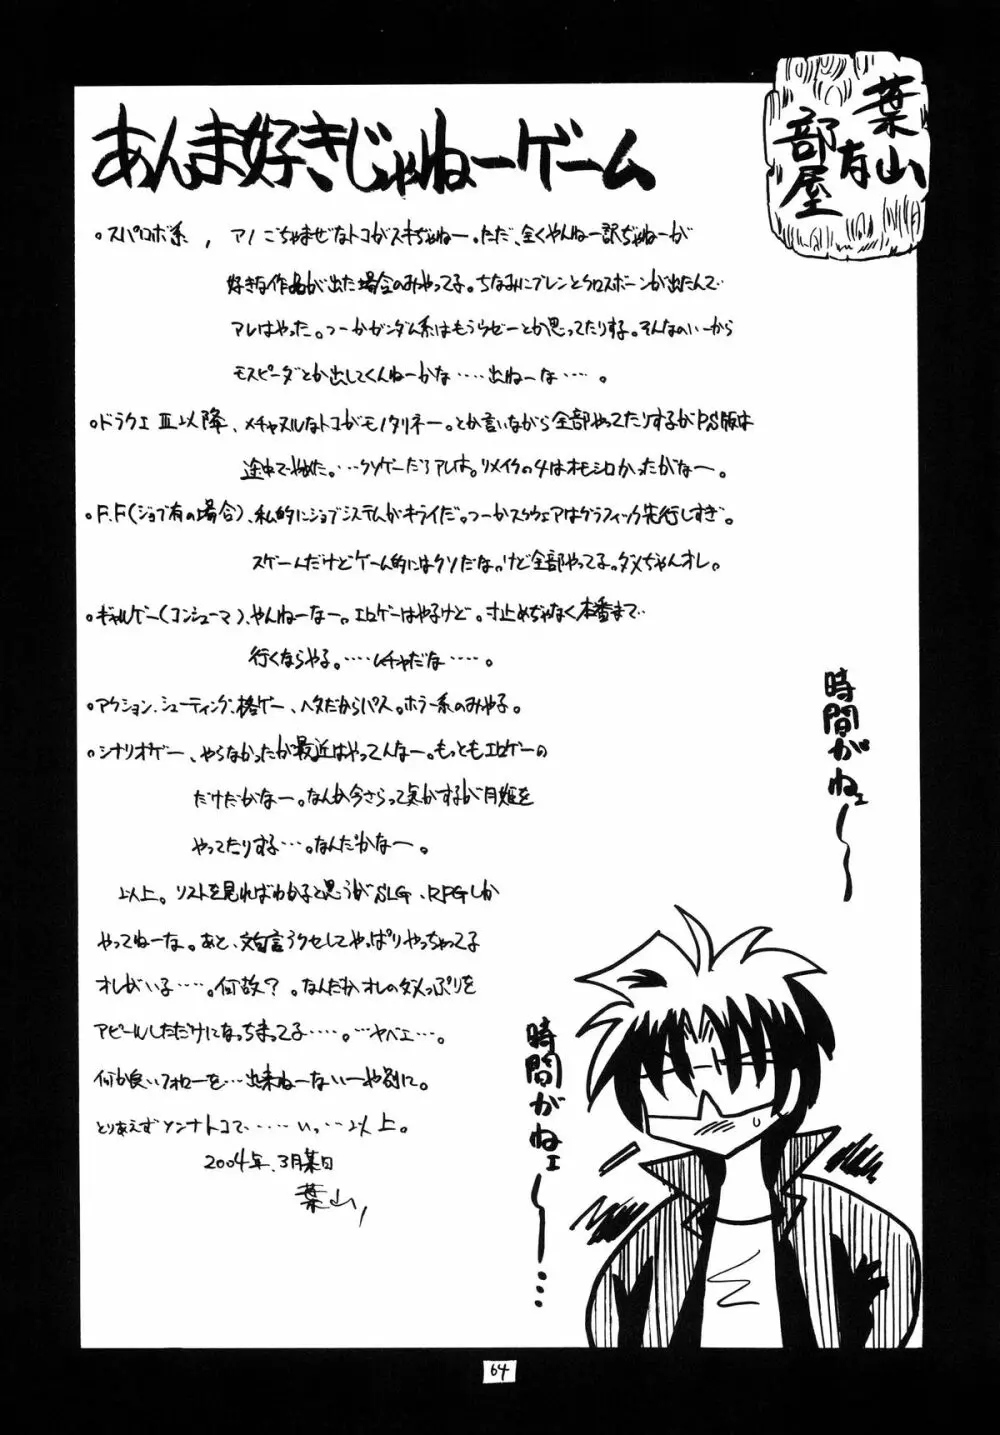 葉山
有
部屋
あんま好きじゃねーゲーム
。スパロボ系、アノごちゃまぜなトコがスキぢゃねー。ただ、全くやんねー訳ぢゃねーが
好きな作品が出た場合のみやってる。ちなみにブレンとクロスボーンが出たんで…
アレはやった。つーかガンダム系はもうウゼーとか思ってたりする。そんなのいーから
モスピーダとか出してくんねーかな……出ねーな……。
。ドラクエⅢ以降、メチャヌルなトコがモノタリネー。とか言いながら全部やってたりするがPS版は
途中でやめた。…クソゲーだろアレは。リメイクの4はオモシロかったがなー。
。F.F(ジョブ有の場合)、私的にジョブシステムがキライだ。つーかスクウェアはグラフィック先行しすぎ。
スゲーんだけどゲーム的にはクソだな。けど全部やってる。ダメぢゃんオレ。
。ギャルゲー(コンシューマ)、やんねーなー。エロゲーはやるけど。寸止めぢゃなく本番まで…
行くならやる。……ムチャだな……。
。アクション、シューティング、格ゲー、ヘタだからパス。ホラー系のみやる。
。シナリオゲー、やらなかったが最近はやってんなー。もっともエロゲーの
だけだがなー。なんか今さらって気がするが月姫を
やってたりする…。なんだかなー。
以上。リストを見ればわかると思うがSLG、RPGしか
やってねーな。あと、文句言うクセしてやっぱりやっちゃってる
オレがいる…。何故？。なんだかオレのダメっぷりを
アピールしただけになっちまってる……。…ヤベェ…。
何か良いフォローを…出来ねーないーや別に。
とりあえずソンナトコで……いっ…以上。
2004年、3月某日
葉山
時間がねェ〜〜
時間がねェ〜〜…
64